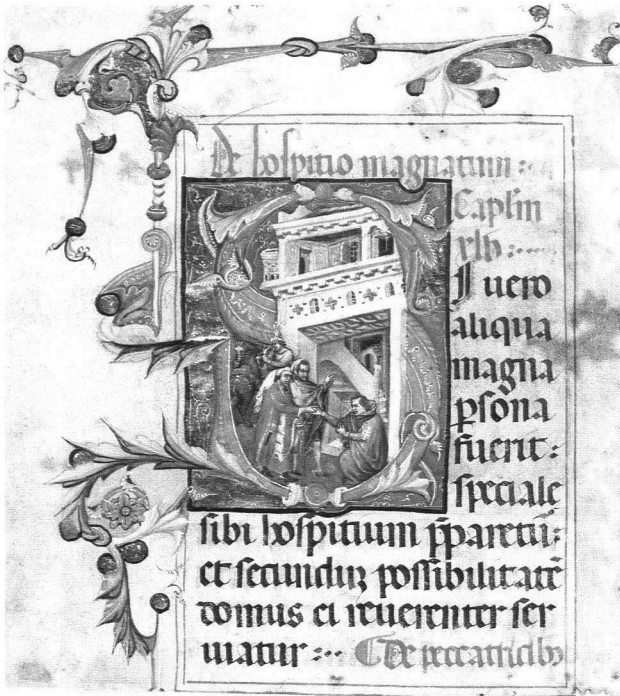 De hospitio magnatum :
Caplm
xlv :
I uero
aliqua
magna
psona
fuerit :
speciale
sibi hospitium pparetur :
et secunduz possibilitate
domus ei reuerenter ser
uiatur : De peccatricibus